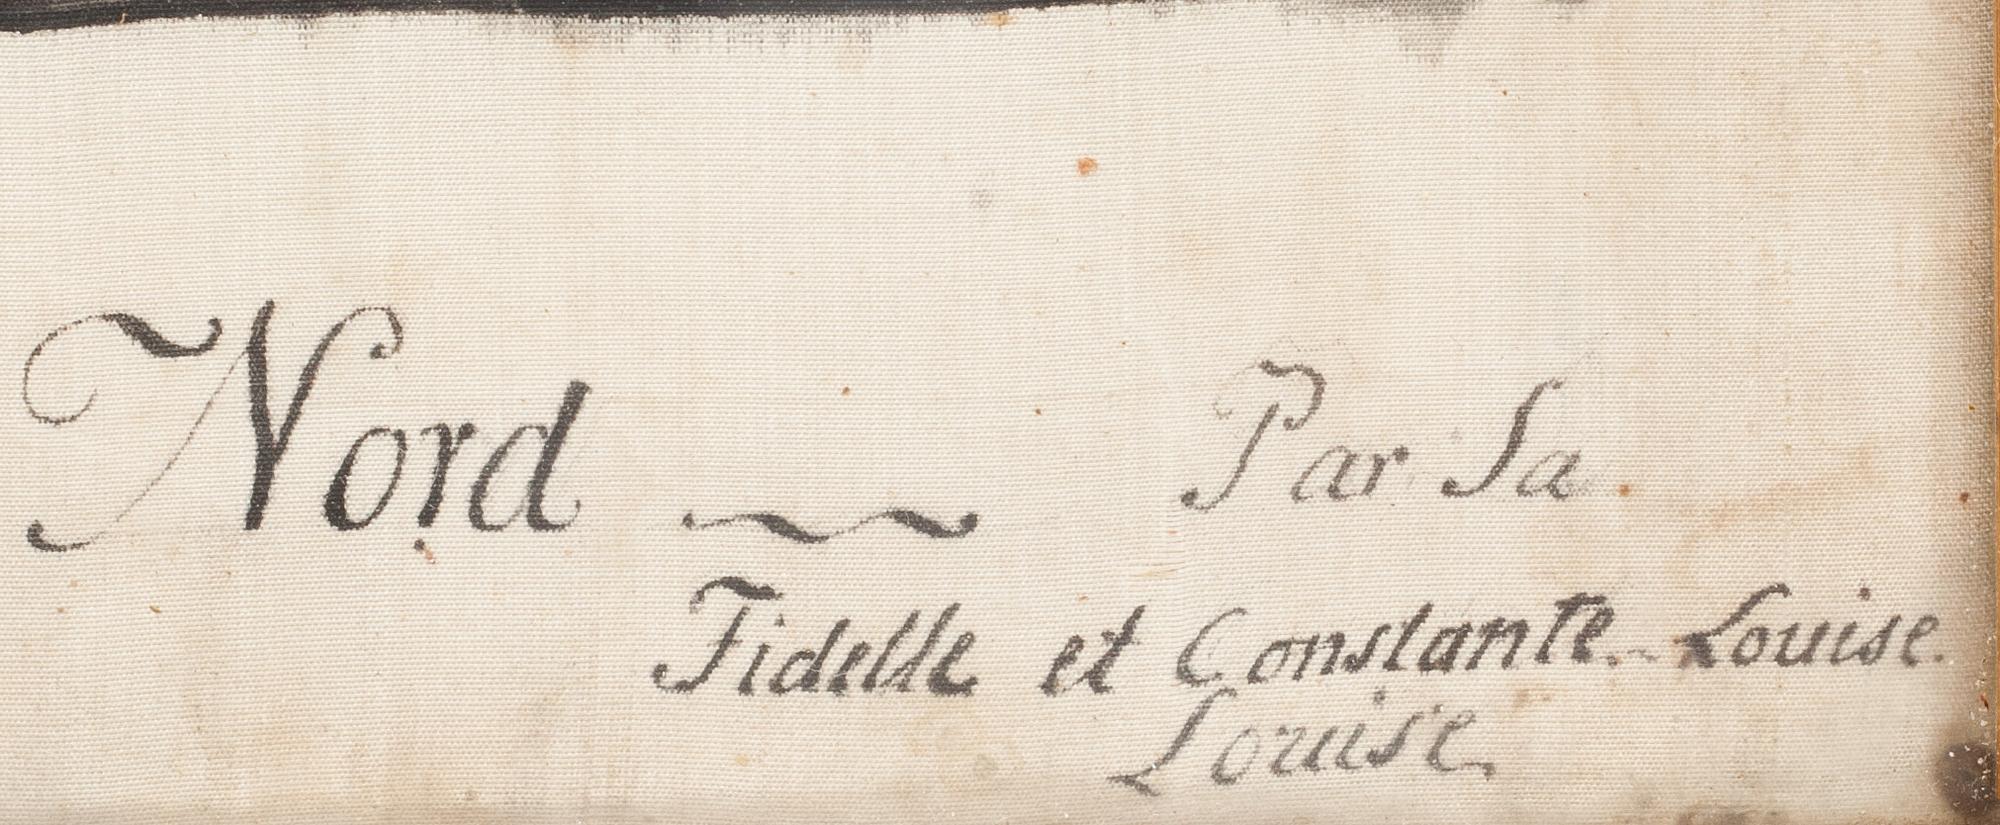 Nord ~ Par Sa
Fidelle et Constante. Louise.
Louise.